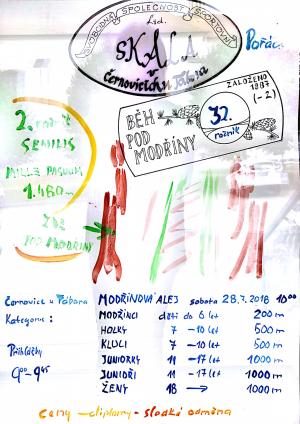 SVOBODNÁ SPOLEČNOST SPORTOVNÍ
Ltd.
SKALA
v
Černovicích u Tábora
Pořádá
ZALOŽENO
1987
(-2)
BĚH
POD
MODŘÍNY
32.
ročník
2. ročník
SEMILIS
MILLE PASUUM
1.480m
POD MODŘÍNY
Černovice u Tábora MODŘÍNOVÁ ALEJ sobota 28.7.2018 10⁰⁰
Kategorie: MODŽÍNCI děti do 6 let 200m
HOLKY 7 -10 let 500m
KLUCI 7 -10 let 500m
Přihlášky JUNIORKY 11 -17 let 1000m
9⁰⁰-9⁴⁵ JUNIOŘI 11 -17 let 1000m
ŽENY 18 → 1000m
Ceny - diplomy - sladká odměna